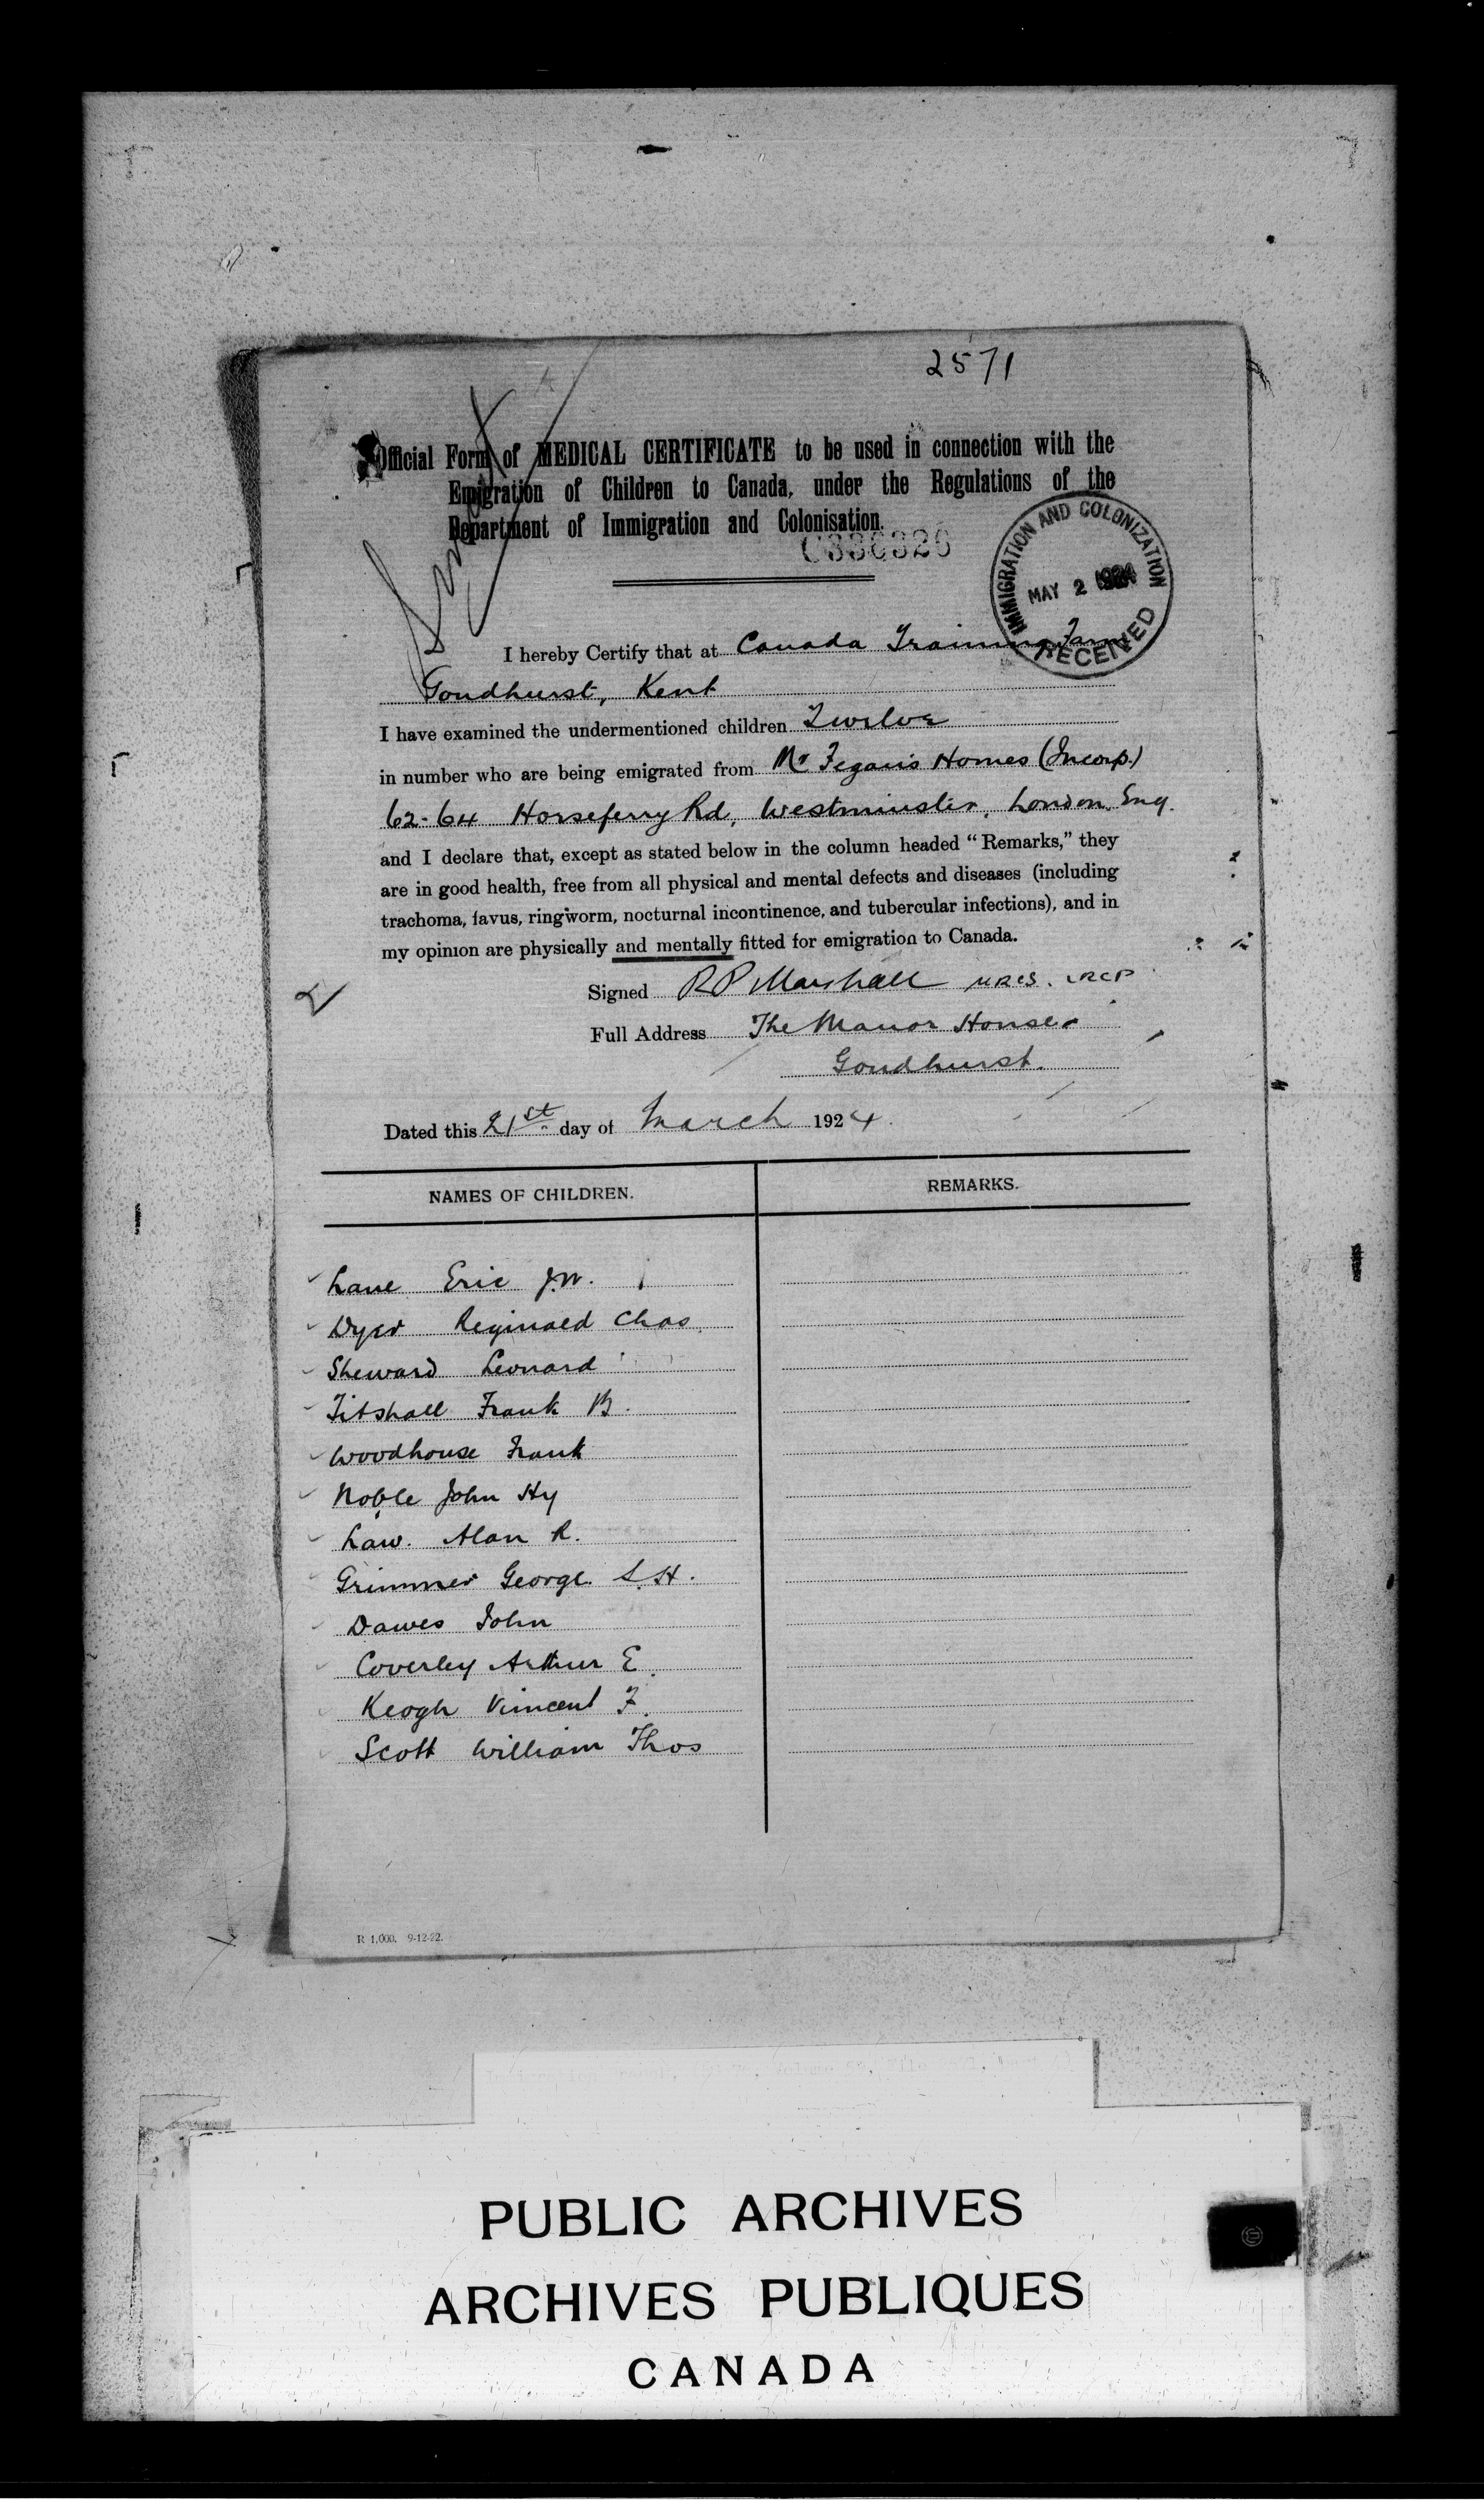 2571
Official Form of MEDICAL CERTIFICATE to be used in connection with the
Emigration of Children to Canada, under the Regulations of the
Department of Immigration and Colonisation.
C336326
IMMIGRATION AND COLONIZATION
MAY 2 1924
RECEIVED
I hereby Certify that at Canada Training Farm
Goudhurst, Kent
I have examined the undermentioned children Twelve
in number who are being emigrated from Mr Fegan's Homes (Incorp.)
62-64 Horseferry Rd, Westminster, London, Eng.
and I declare that, except as stated below in the column headed "Remarks," they
are in good health, free from all physical and mental defects and diseases (including
trachoma, favus, ringworm, nocturnal incontinence, and tubercular infections), and in
my opinion are physically and mentally fitted for emigration to Canada.
Signed RP Marshall MRCS. LRCP
Full Address The Manor House
Goudhurst.
Dated this 21st day of March 1924.
NAMES OF CHILDREN.
REMARKS.
Lane Eric J.W.
Dyer Reginald Chas.
Sheward Leonard
Titshall Frank B.
Woodhouse Frank
Noble John Hy
Law. Alan R.
Grimmer George S.H.
Dawes John
Coverley Arthur E.
Keogh Vincent F.
Scott William Thos
R 1,000. 9-12-22.
PUBLIC ARCHIVES
ARCHIVES PUBLIQUES
CANADA